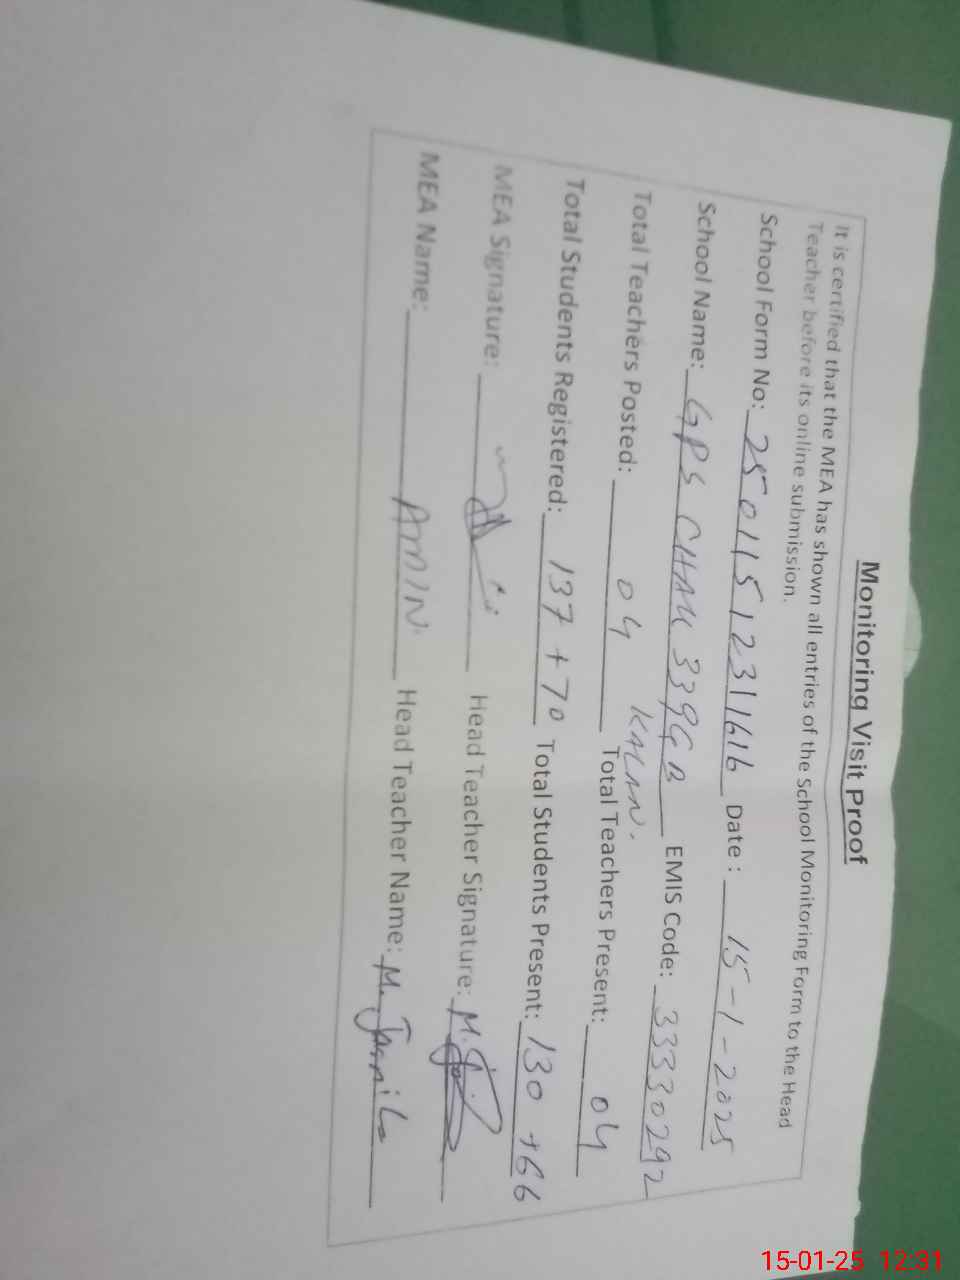 Monitoring Visit Proof
It is certified that the MEA has shown all entries of the School Monitoring Form to the Head
Teacher before its online submission.
School Form No: 25011512311616 Date : 15-1-2025
School Name: GPS CHAK 339GB KALAN. EMIS Code: 33330292
Total Teachers Posted: 04 Total Teachers Present: 04
Total Students Registered: 137 + 70 Total Students Present: 130 + 66
MEA Signature: Head Teacher Signature: M.
MEA Name: AMIN. Head Teacher Name: M. Jamil
15-01-25 12:31